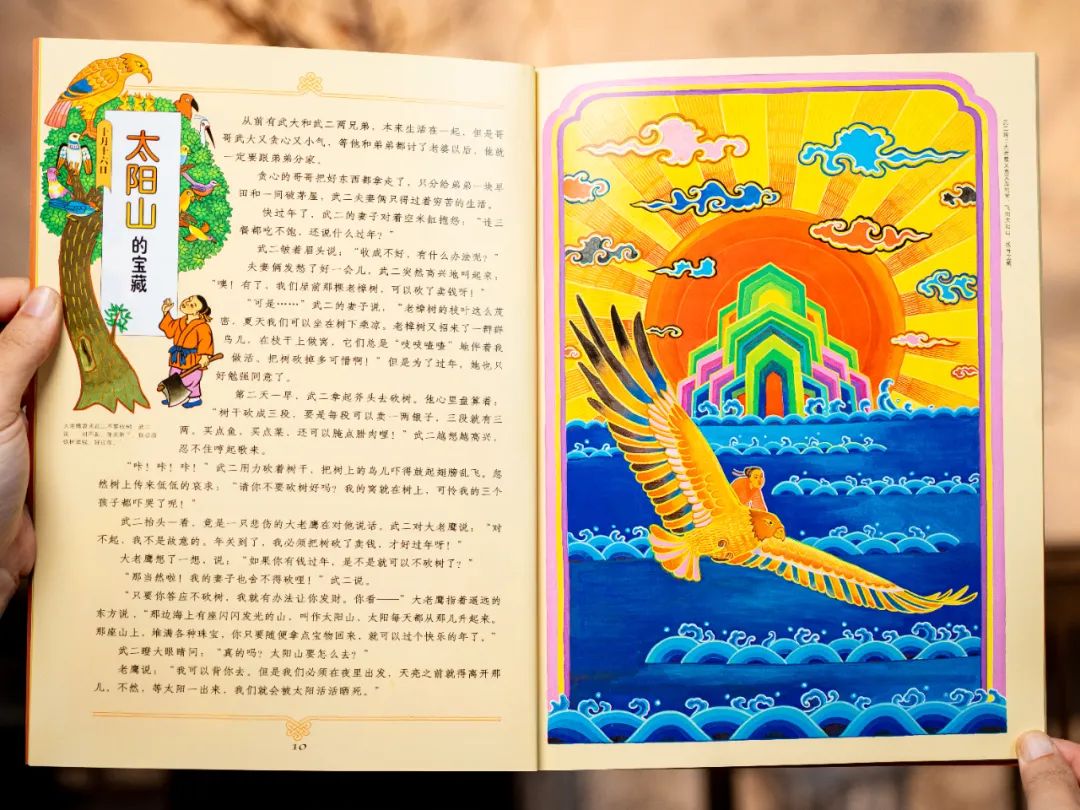 十月十六日
太阳山
的宝藏
从前有武大和武二两兄弟，本来生活在一起，但是哥
哥武大又贪心又小气，等他和弟弟都讨了老婆以后，他就
一定要跟弟弟分家。
贪心的哥哥把好东西都拿走了，只分给弟弟一块旱
田和一间破茅屋，武二夫妻俩只得过着穷苦的生活。
快过年了，武二的妻子对着空米缸抱怨：“连三
餐都吃不饱，还说什么过年？”
武二皱着眉头说：“收成不好，有什么办法呢？”
夫妻俩发愁了好一会儿，武二突然高兴地叫起来：
“噢！有了，我们屋前那棵老樟树，可以砍了卖钱呀！”
“可是……”武二的妻子说，“老樟树的枝叶这么茂
密，夏天我们可以坐在树下乘凉。老樟树又招来了一群群
鸟儿，在枝干上做窝，它们总是“吱吱喳喳”地伴着我
做活，把树砍掉多可惜啊！”但是为了过年，她也只
好勉强同意了。
第二天一早，武二拿起斧头去砍树。他心里盘算着：
“树干砍成三段，要是每段可以卖一两银子，三段就有三
两，买点鱼，买点菜，还可以腌点腊肉哩！”武二越想越高兴，
忍不住哼起歌来。
“咔！咔！咔！”武二用力砍着树干，把树上的鸟儿吓得鼓起翅膀乱飞。忽
然树上传来低低的哀求：“请你不要砍树好吗？我的窝就在树上，可怜我的三个
孩子都吓哭了呢！”
武二抬头一看，竟是一只悲伤的大老鹰在对他说话。武二对大老鹰说：“对
不起，我不是故意的。年关到了，我必须把树砍了卖钱，才好过年呀！”
大老鹰想了一想，说：“如果你有钱过年，是不是就可以不砍树了？”
“那当然啦！我的妻子也舍不得砍哩！”武二说。
“只要你答应不砍树，我就有办法让你发财。你看——”大老鹰指着遥远的
东方说，“那边海上有座闪闪发光的山，叫作太阳山，太阳每天都从那儿升起来。
那座山上，堆满各种珠宝，你只要随便拿点宝物回来，就可以过个快乐的年了。”
武二瞪大眼睛问：“真的吗？太阳山要怎么去？”
老鹰说：“我可以背你去。但是我们必须在夜里出发，天亮之前就得离开那
儿。不然，等太阳一出来，我们就会被太阳活活晒死。”
10